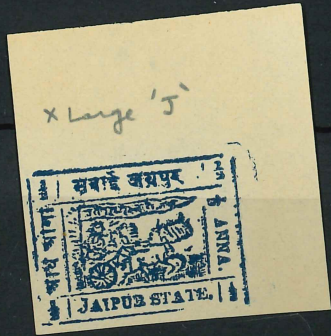 x Large 'J'
सवाई जयपुर
½ ANNA.
JAIPUR STATE.